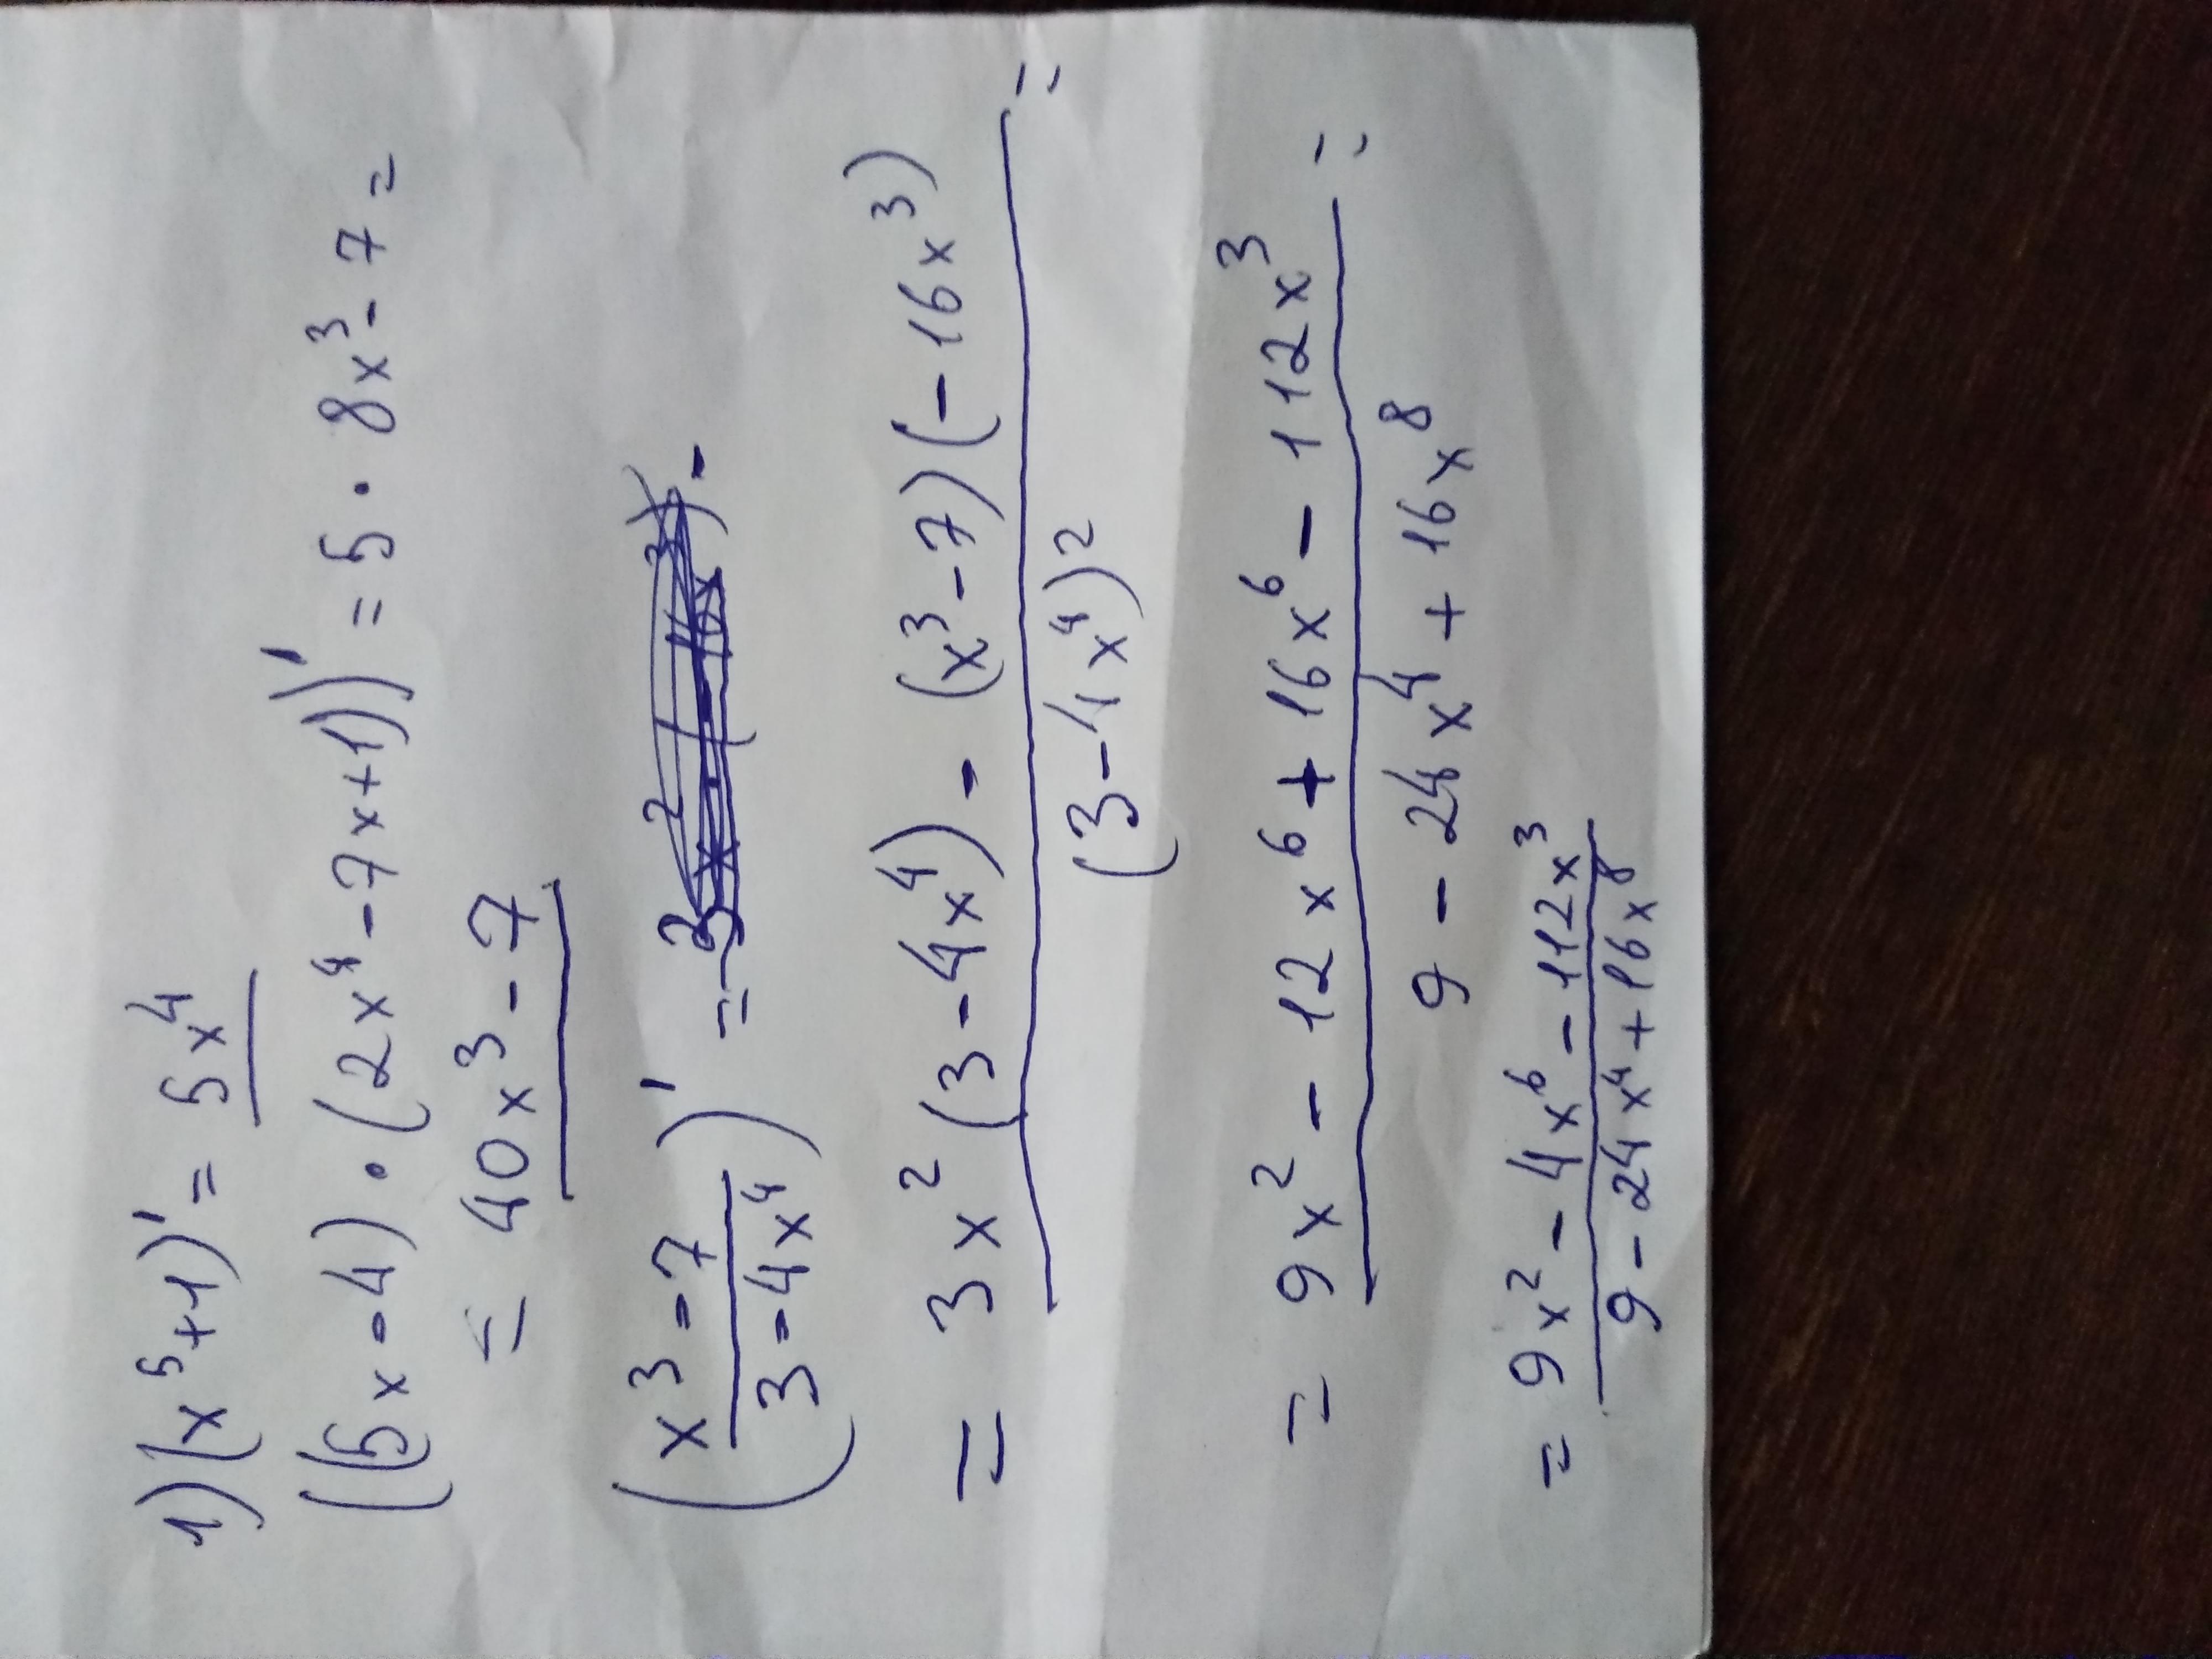 1) (x⁵+1)' = 5x⁴
((5x-4)·(2x⁴-7x+1))' = 5·8x³-7=
= 40x³-7
(x³-7 / 3-4x⁴)' =
= 3x²(3-4x⁴) - (x³-7)(-16x³) / (3-4x⁴)² =
= 9x² - 12x⁶ + 16x⁶ - 112x³ / 9 - 24x⁴ + 16x⁸ =
= 9x² - 4x⁶ - 112x³ / 9 - 24x⁴ + 16x⁸